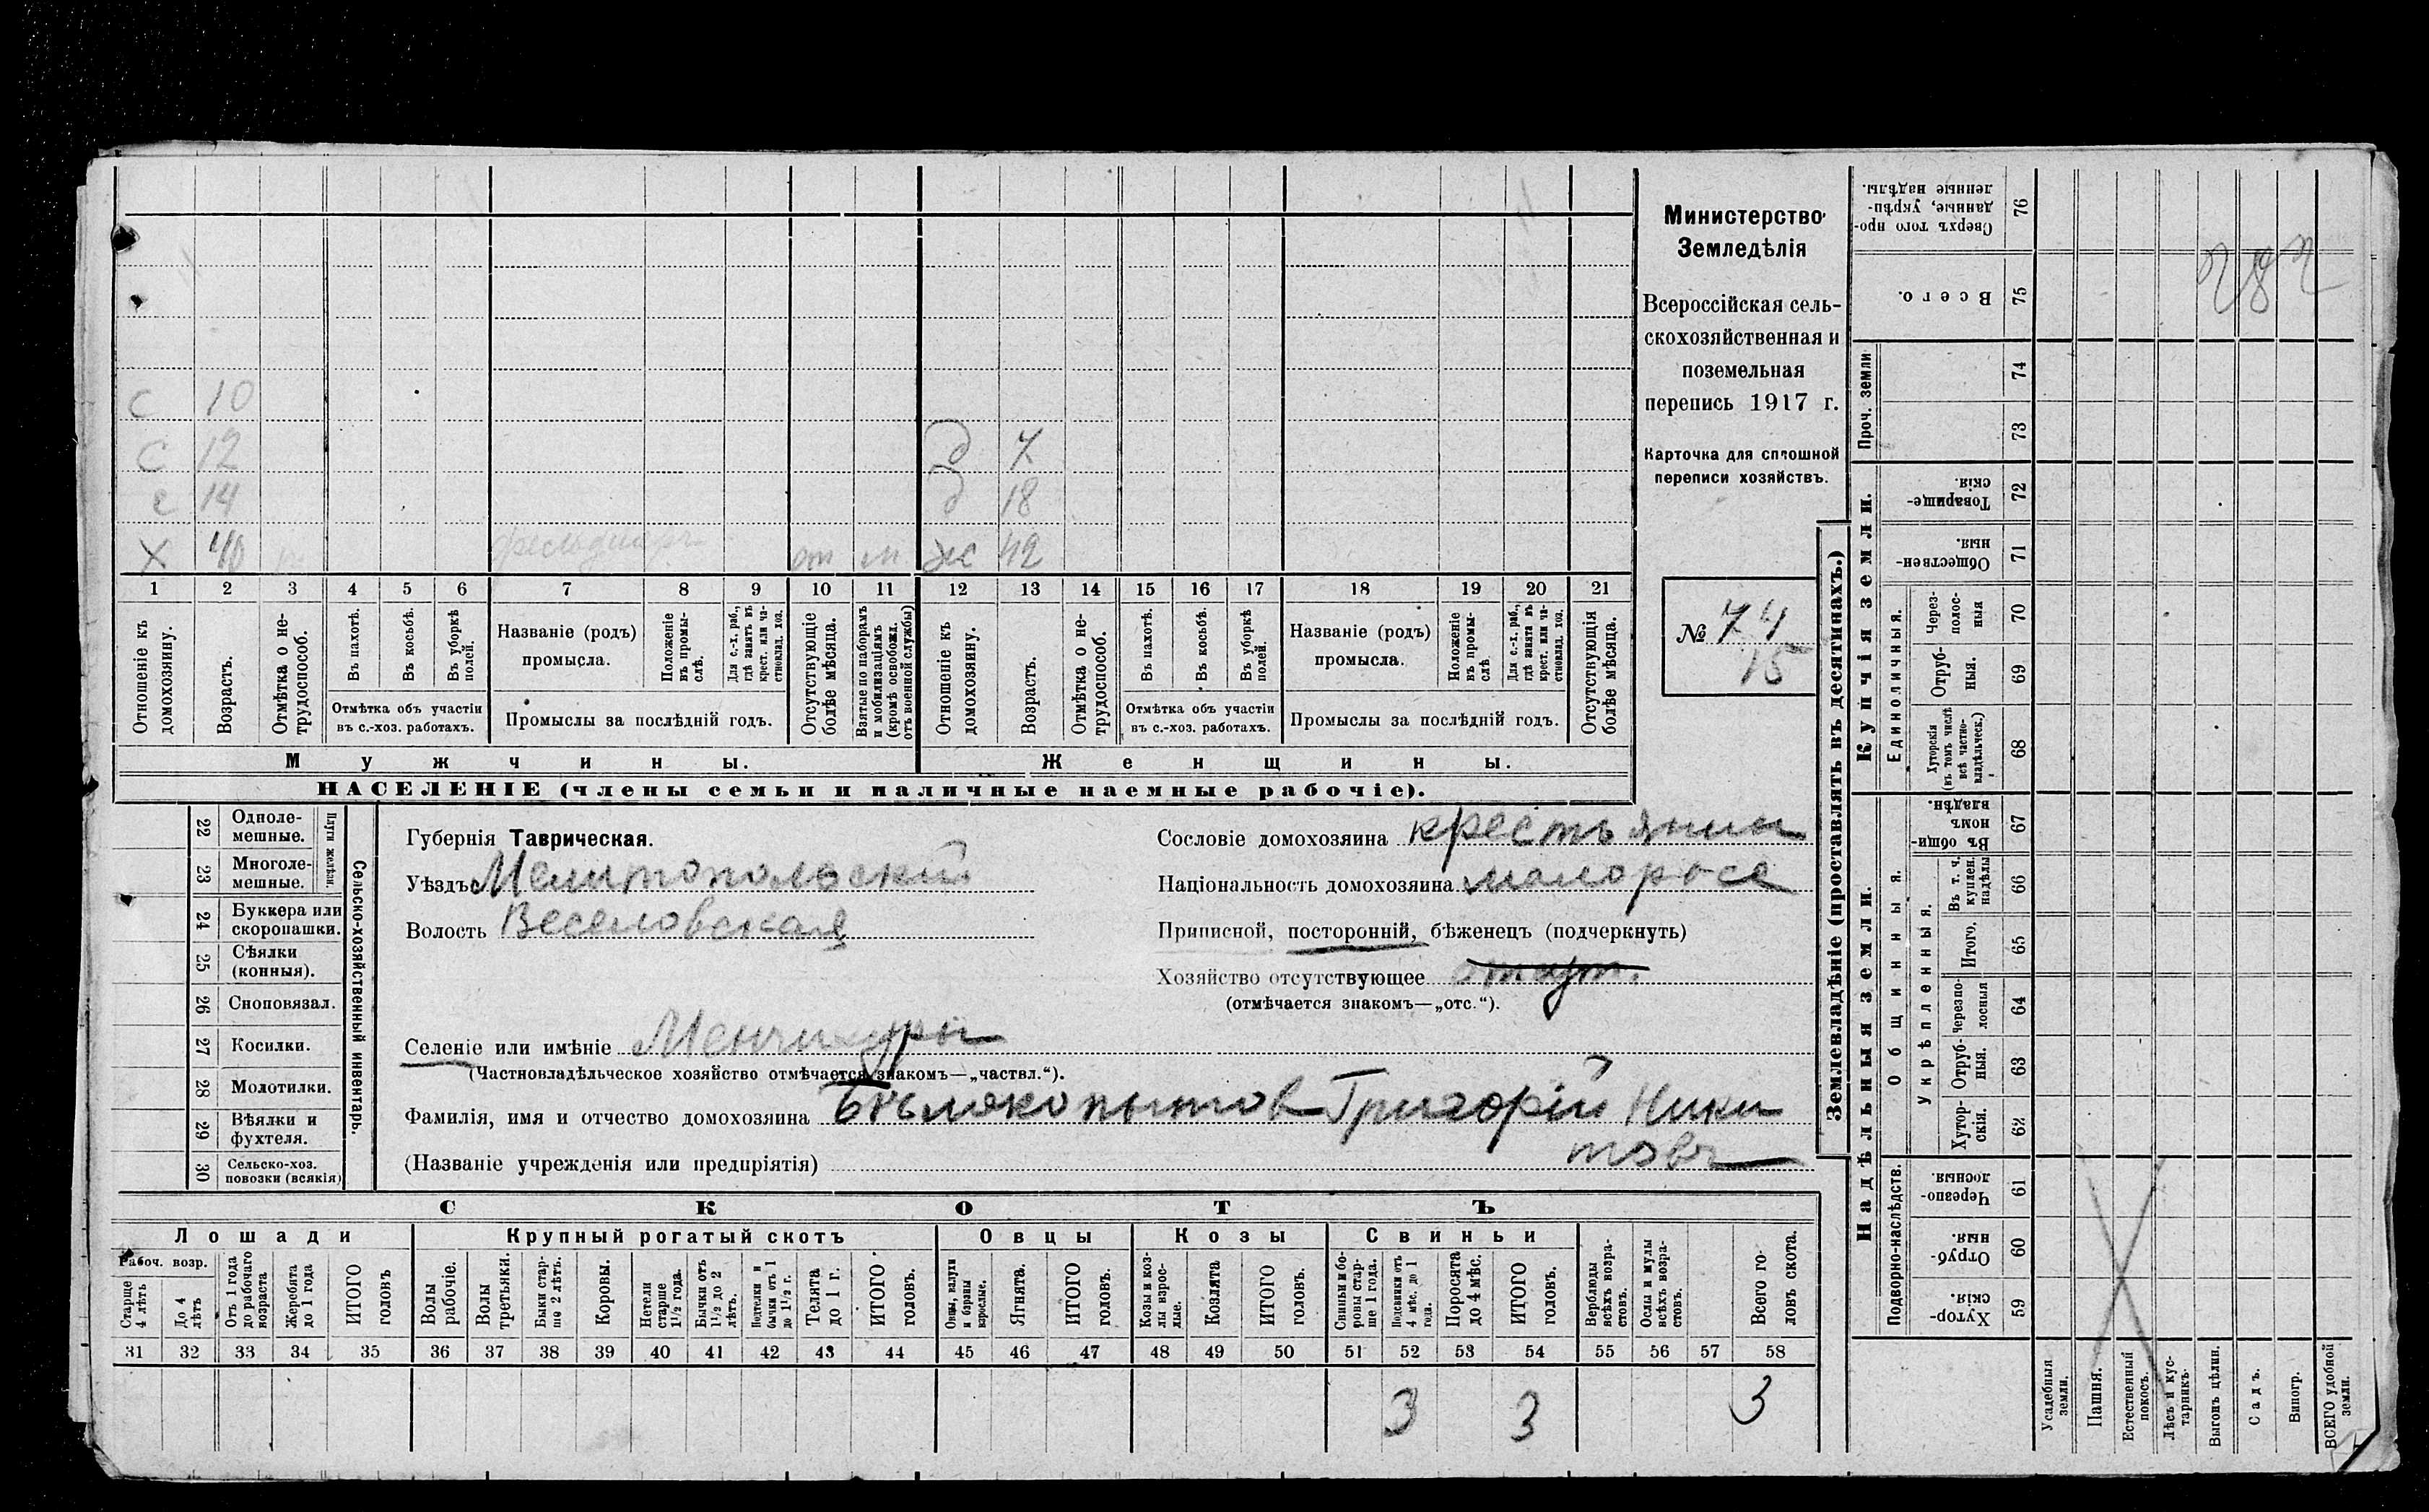 С 10
С 12 д 7
с 14 д 18
Х 40 фельдшеръ от м ж 42
1 2 3 4 5 6 7 8 9 10 11 12 13 14 15 16 17 18 19 20 21
Отношеніе къ домохозяину.
Возрастъ.
Отмѣтка о нетрудоспособ.
Въ пахотѣ.
Въ косьбѣ.
Въ уборкѣ полей.
Отмѣтка объ участіи
въ с.-хоз. работахъ.
Названіе (родъ)
промысла.
Положеніе въ промыслѣ.
Для с.-х. раб., гдѣ занятъ въ крест. или частновлад. хоз.
Промыслы за послѣдній годъ.
Отсутствующіе болѣе мѣсяца.
Взятые по наборамъ и мобилизаціямъ (кромѣ освобожд. отъ военной службы)
Отношеніе къ домохозяину.
Возрастъ.
Отмѣтка о нетрудоспособ.
Въ пахотѣ.
Въ косьбѣ.
Въ уборкѣ полей.
Отмѣтка объ участіи
въ с.-хоз. работахъ.
Названіе (родъ)
промысла.
Положеніе въ промыслѣ
Для с.-х. раб., гдѣ занята въ крест. или частновлад. хоз.
Промыслы за послѣдній годъ.
Отсутствующія болѣе мѣсяца.
Мужчины. Женщины.
НАСЕЛЕНІЕ (члены семьи и наличные наемные рабочіе).
Министерство
Земледѣлія
Всероссійская сель-
скохозяйственная и
поземельная
перепись 1917 г.
Карточка для сплошной
переписи хозяйствъ.
№ 74
15
Сельско-хозяйственный инвентарь.
Плуги желѣзн.
22 Одноле-
мешные.
23 Многоле-
мешные.
24 Буккера или
скоропашки.
25 Сѣялки
(конныя).
26 Сноповязал.
27 Косилки.
28 Молотилки.
29 Вѣялки и
фухтеля.
30 Сельско-хоз.
повозки (всякія)
Губернія Таврическая.
Уѣздъ Мелитопольскій
Волость Веселовская
Сословіе домохозяина крестьянин
Національность домохозяина малоросс
Приписной, посторонній, бѣженецъ (подчеркнуть)
Хозяйство отсутствующее
(отмѣчается знакомъ—„отс.“).
Селеніе или имѣніе Менчикуры
(Частновладѣльческое хозяйство отмѣчается знакомъ—„частвл.“).
Фамилія, имя и отчество домохозяина Бѣлокопытов Григорій Ники
товъ
(Названіе учрежденія или предпріятія)
СКОТЪ
Лошади Крупный рогатый скотъ Овцы Козы Свиньи
Рабоч. возр.
Старше 4 лѣтъ
До 4 лѣтъ
Отъ 1 года до рабочаго возраста
Жеребята до 1 года
ИТОГО головъ
Волы рабочіе.
Волы третьяки.
Быки старше 2 лѣтъ.
Коровы.
Нетели старше 1½ года.
Бычки отъ 1½ до 2 лѣтъ.
Телята до 1 г.
ИТОГО головъ.
Овцы, валухи и бараны взрослые.
Ягнята.
ИТОГО головъ.
Козы и козлы взрослые.
Козлята
ИТОГО головъ.
Свиньи и боровы старше 1 года.
Подсвинки отъ 4 мѣс. до 1 года.
Поросята до 4 мѣс.
ИТОГО головъ.
Верблюды всѣхъ возрастовъ.
Ослы и мулы всѣхъ возрастовъ.
Всего головъ скота.
31 32 33 34 35 36 37 38 39 40 41 42 43 44 45 46 47 48 49 50 51 52 53 54 55 56 57 58
3 3 3
Землевладѣніе (проставлять въ десятинахъ.)
Купчія земли.
Надѣльныя земли.
Сверхъ того проданные, укрѣпленные надѣлы. 76
Всего. 75
Проч. земли
74
73
Товарищескія. 72
Общественныя. 71
Единоличныя.
Черезполосныя 70
Отрубныя. 69
Хуторскія (въ томъ числѣ всѣ частновладѣльческ.) 68
Общинныя.
Въ общинномъ владѣн. 67
Укрѣпленныя.
Въ т. ч. куплен. надѣлы 66
Итого. 65
Черезполосныя 64
Отрубныя. 63
Хуторскія. 62
Подворно-наслѣдств.
Черезполосныя 61
Отрубныя. 60
Хуторскія. 59
Усадебныя земли.
Пашня.
Естественный покосъ.
Лѣсъ и кустарникъ.
Выгонъ цѣлин.
Садъ.
Виногр.
ВСЕГО удобной земли.